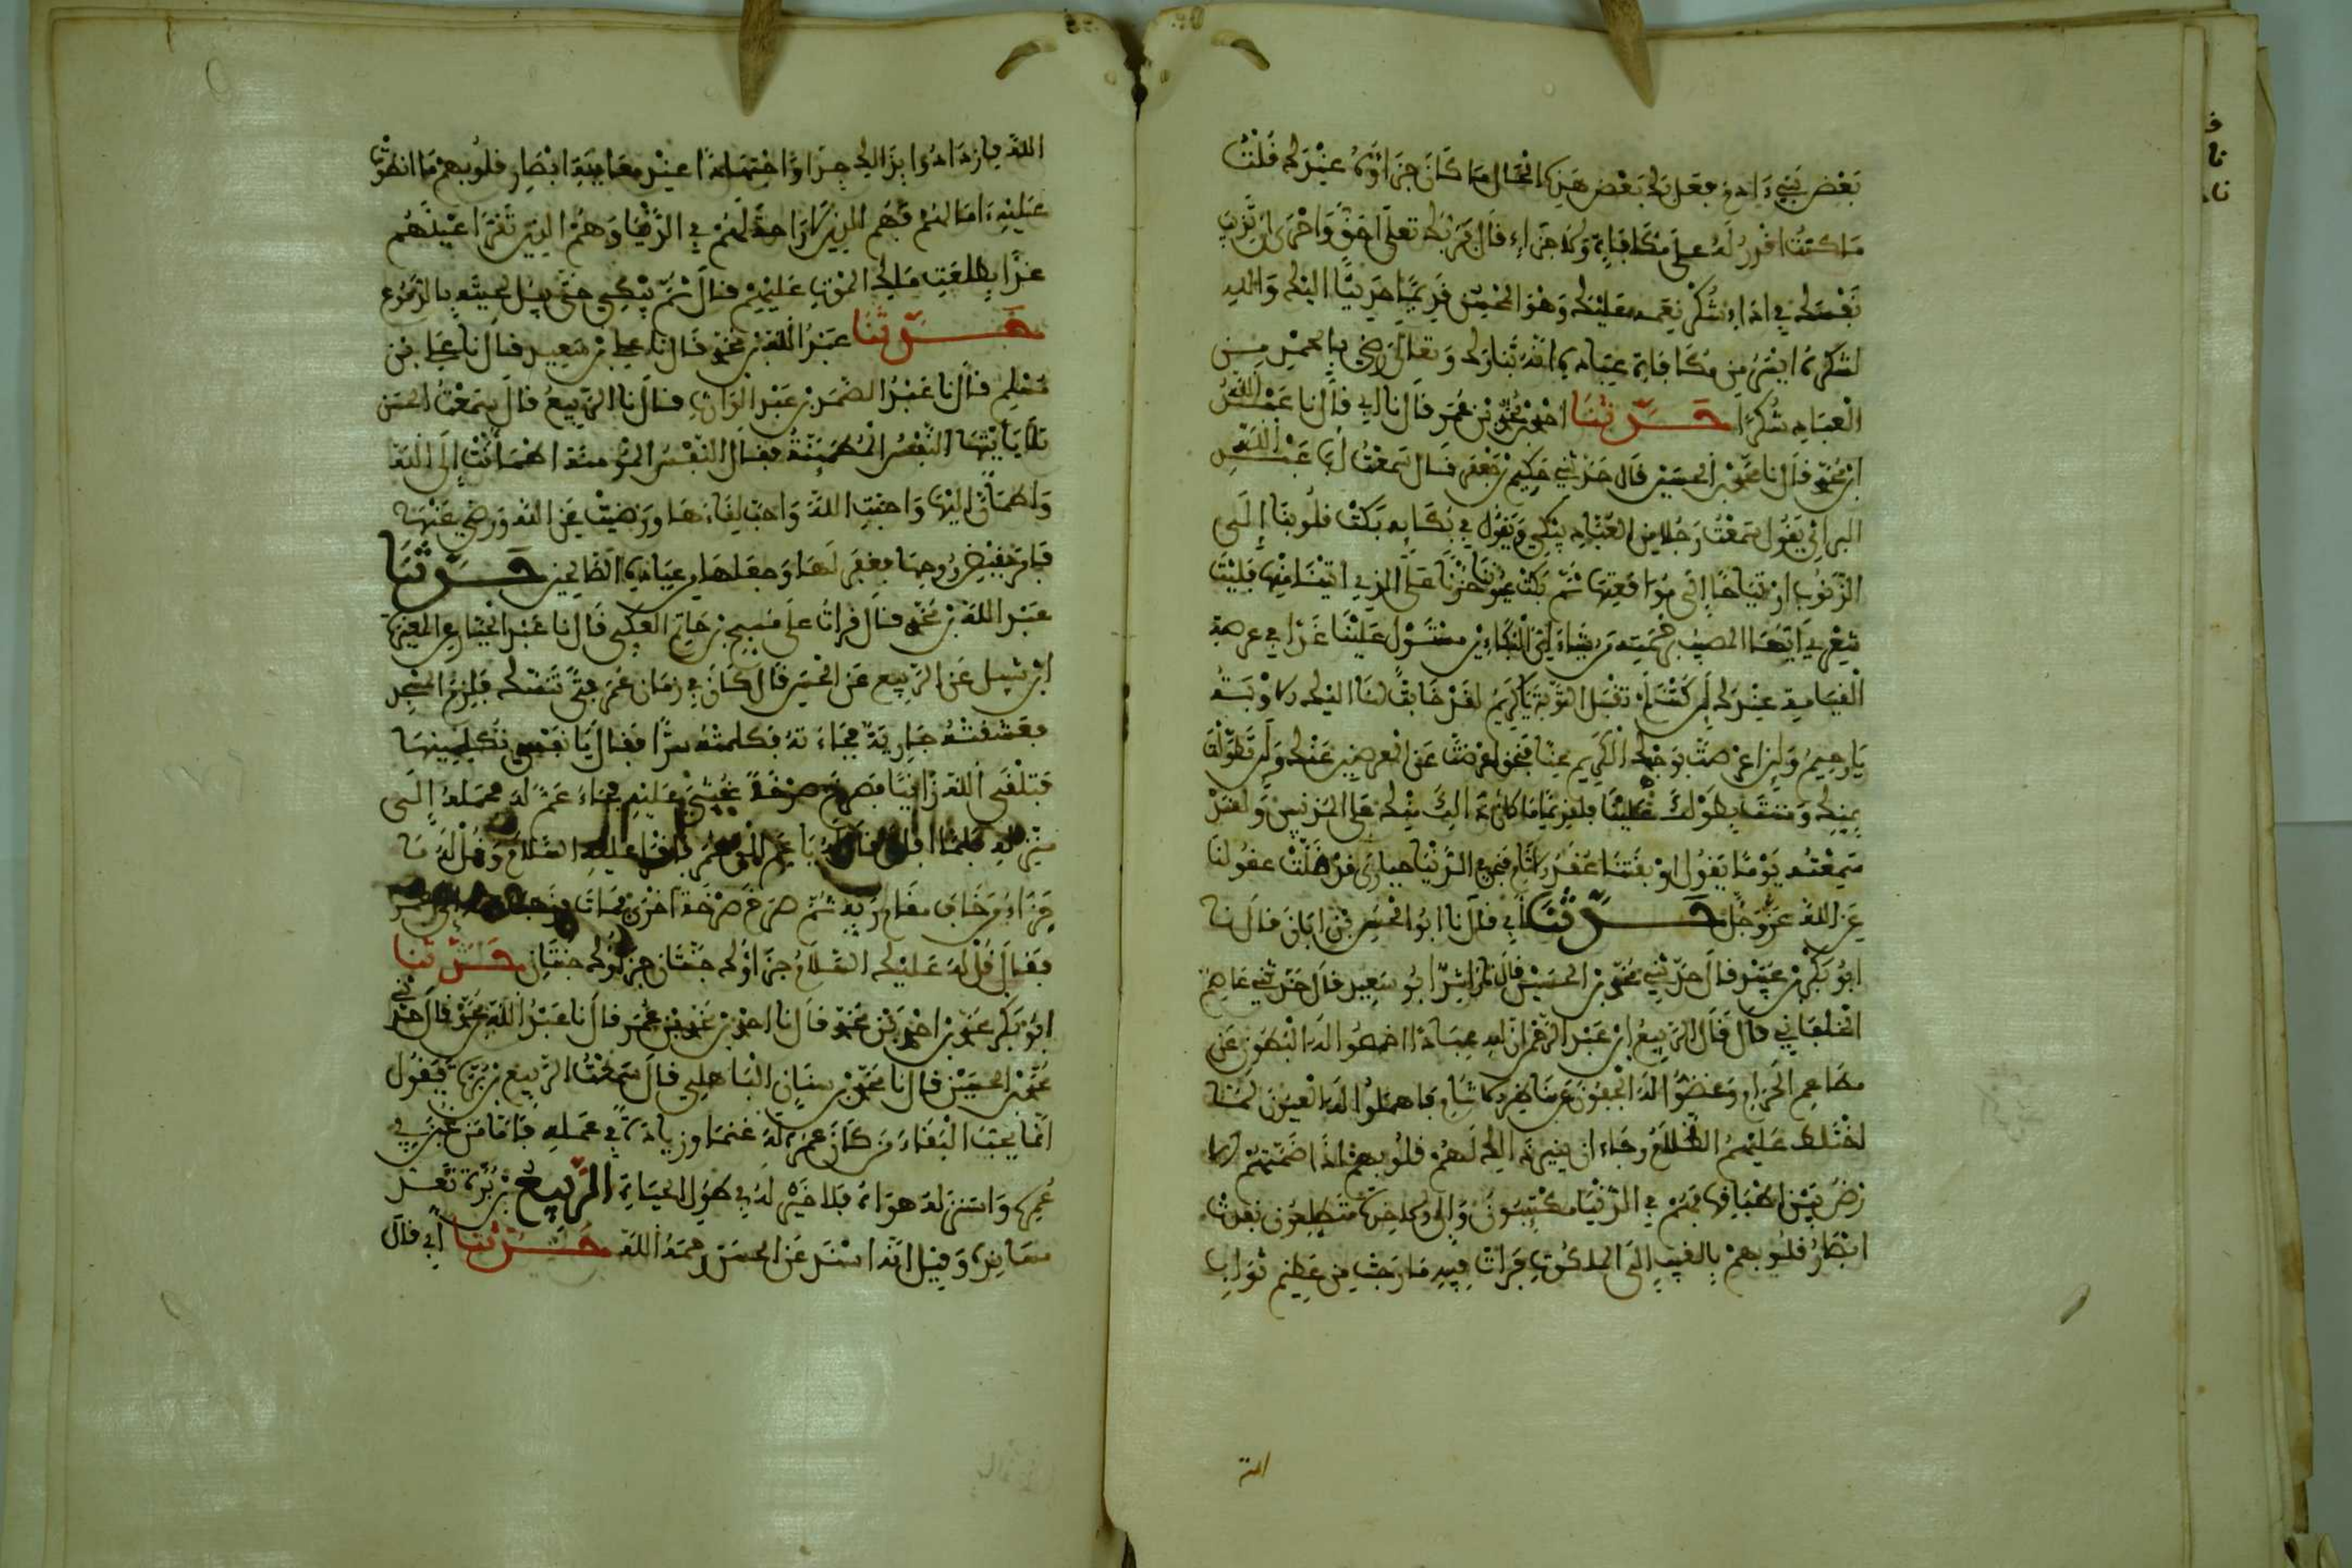 بعض بني ءادم فعل بك بعض هذا الحال ما كان جزاؤه عندك قلت
ما كنت اقدر له على مكافاة ولا جزاء قال فربك تعلى احق واحرى ان تدئب
نفسك في اداء شكر نعمه عليك وهو المحسن قديما حديثا اليك والله
لشكره ايسر من مكافاة عباده انه تبارك وتعالى رضي بالحمد من
العباد شكرا حدثنا احمد بن محمد بن عمر قال نا ابي قال نا عبد الله
ابن محمد قال نا محمد بن الحسين قال حدثني حكيم بن جعفر قال سمعت ابا عبد الله
البراثي يقول سمعت رجلا من العباد يبكي ويقول في بكايه بكت قلوبنا الى
الذنوب ارتياحا الى مواقعتها ثم بكت عيوننا حزنا على الذي اتينا منها فليت
شعري ايها المصيب برحمته من يشاء اي البكاءين مستول علينا غدا في عرصة
القيامة عندك لئن كنت لم تقبل التوبة يا كريم لقد خابت لنا اليك الاوبة
يا رحيم ولئن اعرضت بوجهك الكريم عنا فبحق اعرضت عن المعرضين عنك ولئن تطولت
بمنك ومننت بطولك علينا فلقديما ما كان ذالك منك على المذنبين ولقد
سمعته يوما يقول اوبقتنا عقد الاثام فنحن في الدنيا حيارى قد ضلت عقولنا
عن الله عز وجل حدثنا ابي قال نا ابو الحسن بن ابان قال نا
ابو بكر بن عبيد قال حدثني محمد بن الحسين قال نا راشد ابو سعيد قال حدثني عاصم
الخلقاني قال قال الربيع ابن عبد الرحمن ان لله عبادا اخمصوا له البطون عن
مطاعم الحرام وغضوا له الجفون عن مناظر الاثام واهملوا له العيون لما
اختلط عليهم الظلام رجاء ان ينير ذالك لهم قلوبهم اذا ضمتهم الا
رض بين اطباقها فهم في الدنيا مكتيبون والى الاخرة متطلعون نفذت
ابصار قلوبهم بالغيب الى الملكوت فرات فيه ما رجت من عظيم ثواب
الله
الله فازدادوا بذالك جدا واجتهادا عند معاينة ابصار قلوبهم ما انطوت
عليه ءامالهم فهم الذين لا راحة لهم في الدنيا وهم الذين تقر اعينهم
غدا بطلعة ملك الموت عليهم قال ثم يبكي حتى يبل لحيته بالدموع
حدثنا عبد الله بن محمد قال نا علي بن سعيد قال نا علي بن
مسلم قال نا عبد الصمد بن عبد الوارث قال نا الربيع قال سمعت الحسن
تلا يا ايتها النفس المطمئنة فقال النفس المؤمنة اطمانت الى الله
واطمان اليها واحبت الله واحب لقاءها ورضيت عن الله ورضي عنها
فامر بقبض روحها فغفر لها وجعلها من عباده الصالحين حدثنا
عبد الله بن محمد قال قرات على مسبح بن حاتم العكلي قال نا عبد الجبار عن المغيرة
ابن شبل عن الربيع عن الحسن قال كان في زمان عمر فتى تنسك فلزم المسجد
فعشقته جارية فجاءته فكلمته سرا فقال يا نفسي تكلمينها
فتلقى الله زانيا فصرخ صرخة غشي عليه فجاء عم له فحمله الى
منزله فلما افاق قال له يا عم الق عمر فاقرا عليه السلام وقل له ما
جزاء من خاف مقام ربه ثم صرخ صرخة اخرى فمات
فقال قل له عليك السلام جزاؤك جنتان جزاؤك جنتان حدثنا
ابو بكر محمد بن احمد بن محمد قال نا احمد بن محمد بن عمر قال نا عبد الله بن محمد قال حدثني
محمد بن الحسين قال نا محمد بن سنان الباهلي قال سمعت الربيع بن برة يقول
انما يحب البقاء من كان عمره له غنما وزيادة في عمله فاما من غبن في
عمره واستزله هواه فلا خير له في طول الحياة الربيع بن برة تعذر
مسانيده وقيل انه اسند عن الحسن رحمه الله حدثنا ابي قال